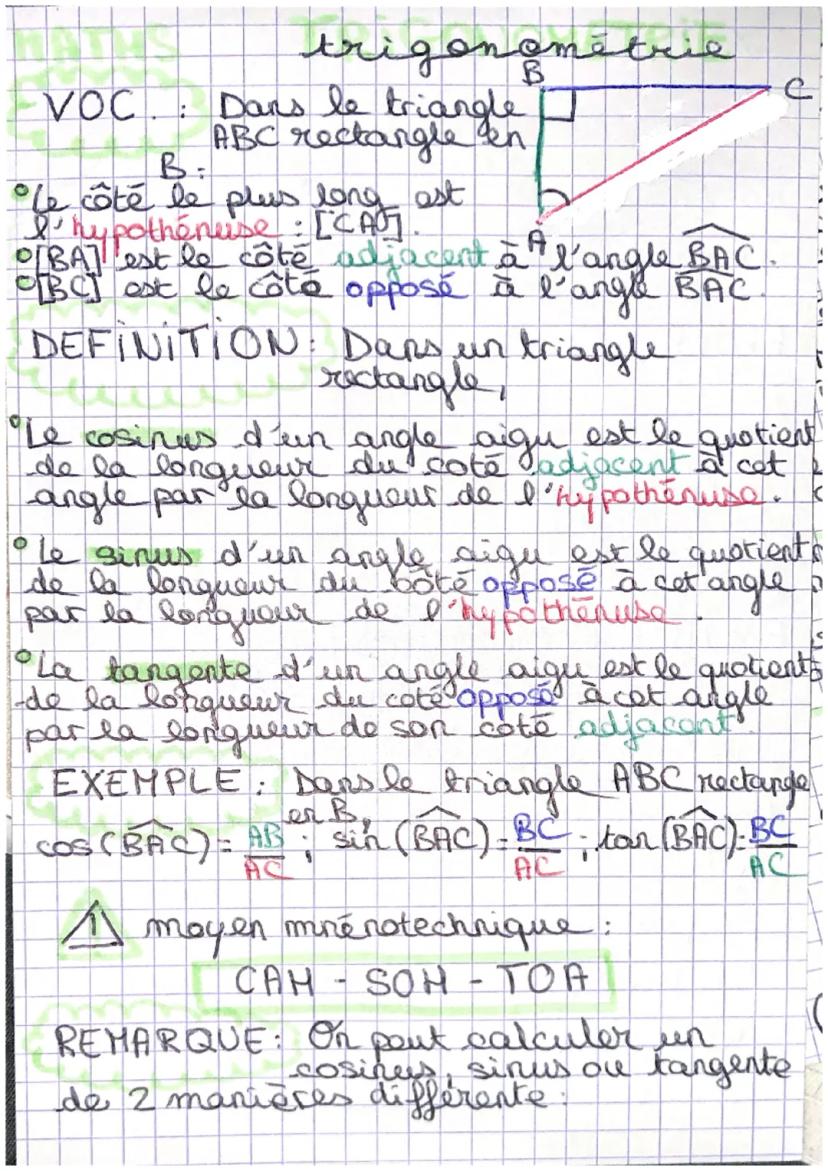 MATHS trigonométrie
B
C
A
VOC. : Dans le triangle
ABC rectangle en
B :
Le côté le plus long est
l'hypothénuse : [CA].
[BA] est le côté adjacent à l'angle BAC.
[BC] est le côté opposé à l'angle BAC.
DEFINITION : Dans un triangle
rectangle,
Le cosinus d'un angle aigu est le quotient
de la longueur du coté adjacent à cet
angle par la longueur de l'hypothénuse.
Le sinus d'un angle aigu est le quotient
de la longueur du côté opposé à cet angle
par la longueur de l'hypothénuse.
La tangente d'un angle aigu est le quotient
de la longueur du coté opposé à cet angle
par la longueur de son coté adjacent.
EXEMPLE : Dans le triangle ABC rectangle
en B,
cos(BAC) = AB/AC ; sin(BAC) = BC/AC ; tan(BAC) = BC/AC
! moyen mnénotechnique :
CAH - SOH - TOA
REMARQUE : On peut calculer un
cosinus, sinus ou tangente
de 2 manières différente :